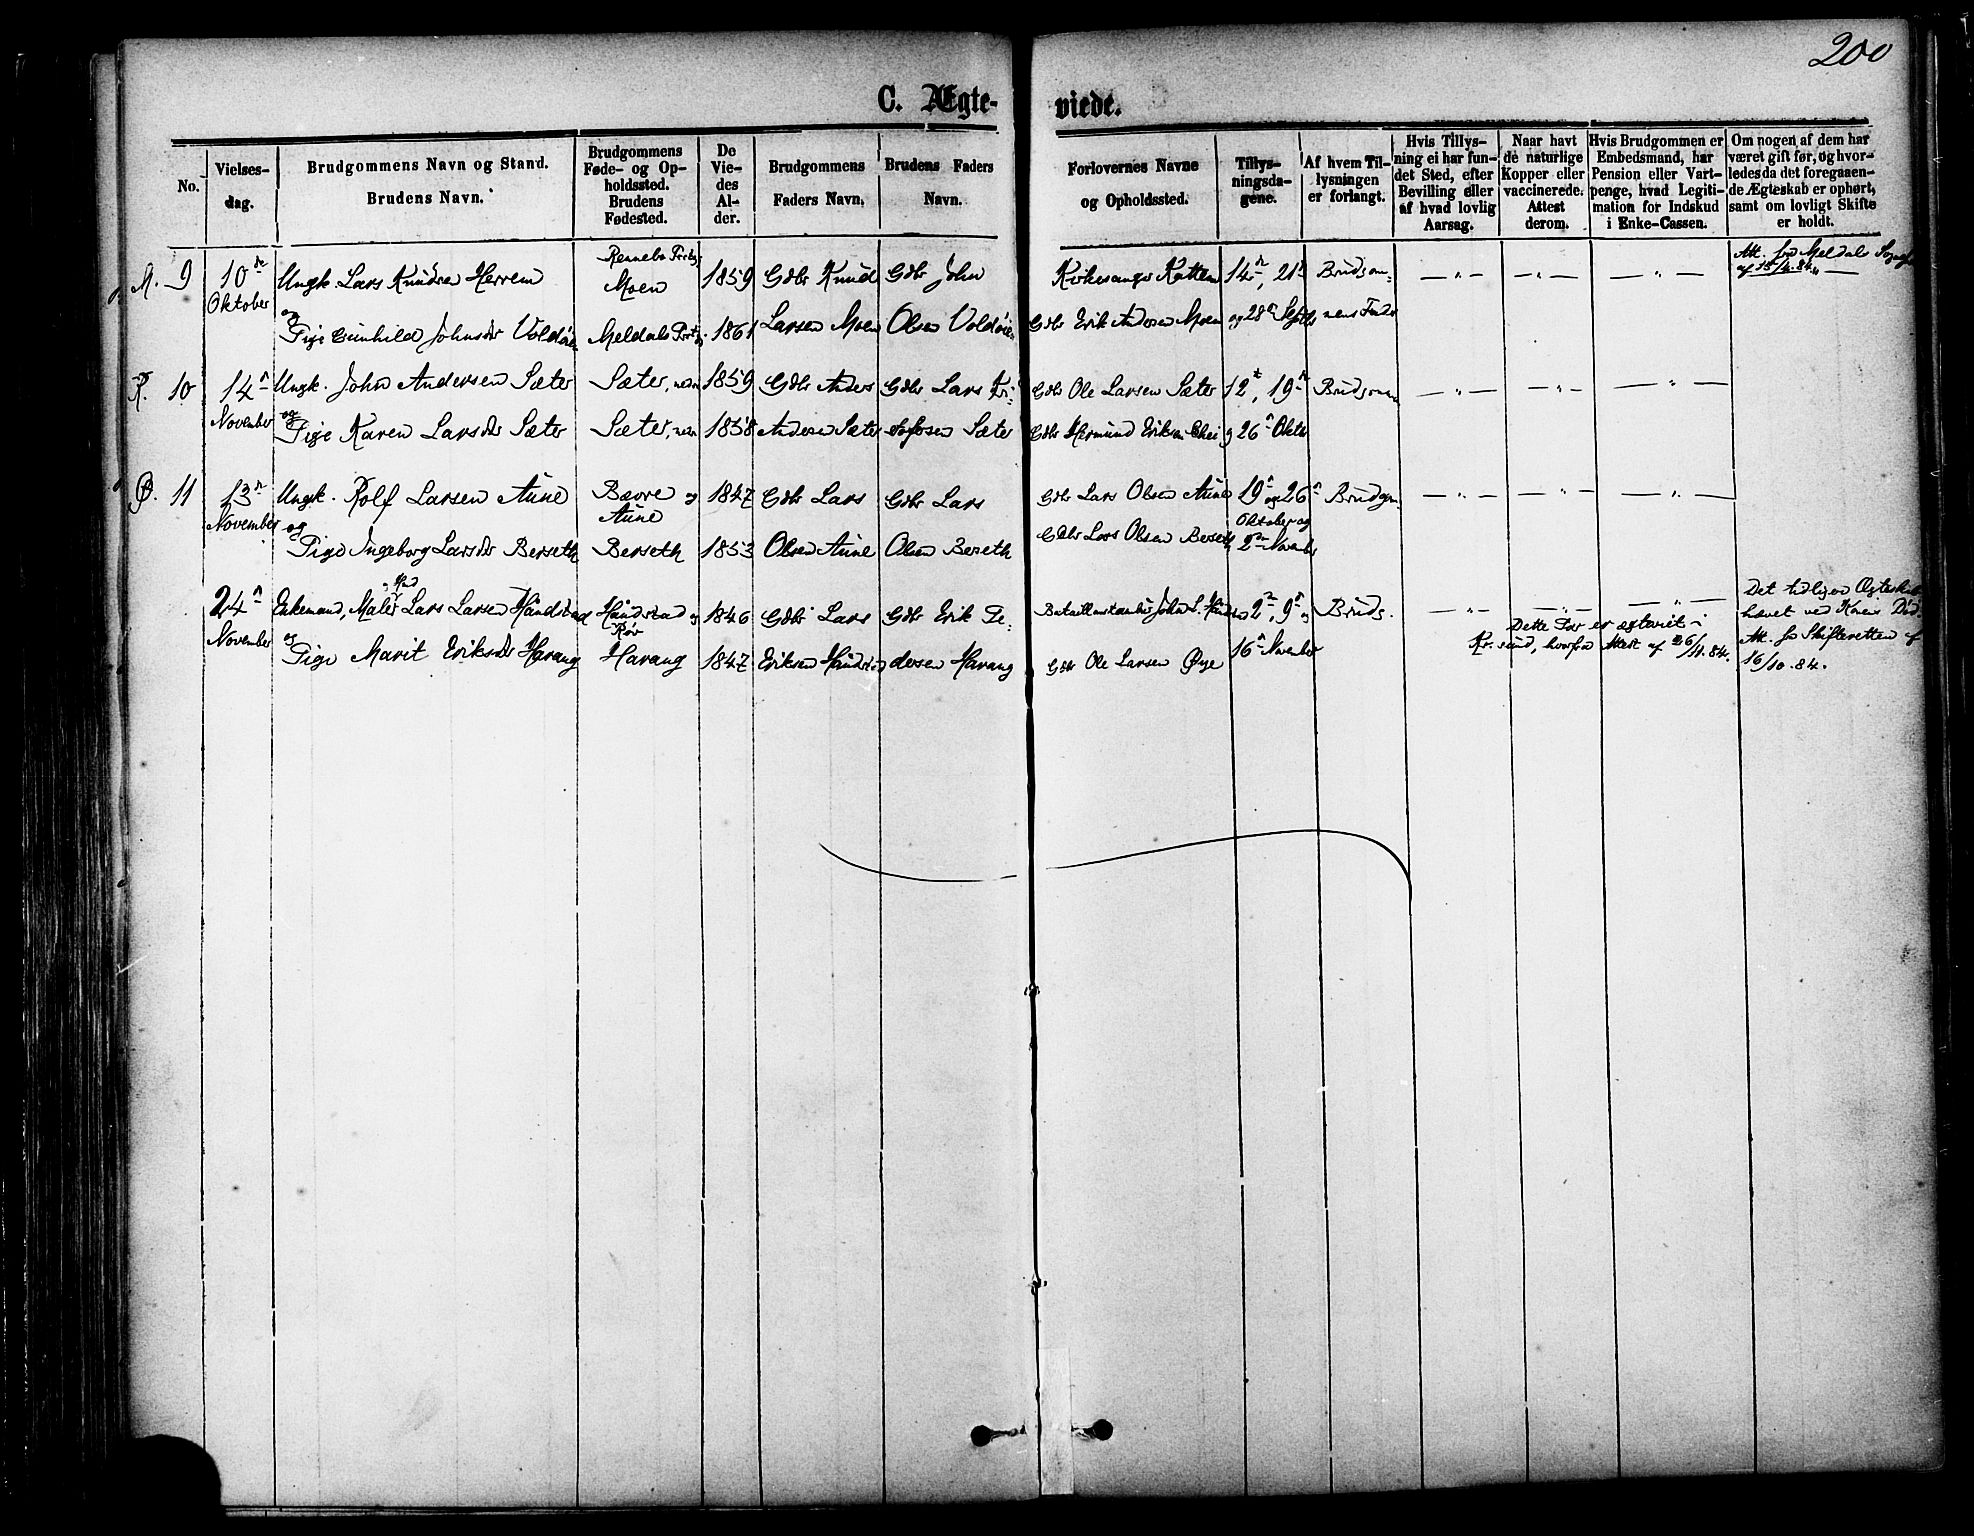 200
C. Ægte- viede.
No.
Vielses-
dag.
Brudgommens Navn og Stand.
Brudens Navn.
Brudgommens
Føde- og Op-
holdssted.
Brudens
Fødested.
De
Vie-
des
Al-
der.
Brudgommens
Faders Navn.
Brudens Faders
Navn.
Forlovernes Navne
og Opholdssted.
Tillys-
ningsda-
gene.
Af hvem Til-
lysningen
er forlangt.
Hvis Tillys-
ning ei har fun-
det Sted, efter
Bevilling eller
af hvad lovlig
Aarsag.
Naar havt
de naturlige
Kopper eller
vaccinerede.
Attest
derom.
Hvis Brudgommen er
Embedsmand, har
Pension eller Vart-
penge, hvad Legiti-
mation for Indskud
i Enke-Cassen.
Om nogen af dem har
været gift før, og hvor-
ledes da det foregaaen-
de Ægteskab er ophørt,
samt om lovligt Skifte
er holdt.
M. 9
10de
Oktober
Ungk. Lars Knudsen Herrem
og
Pige Gunhild Johnsdr Voldøie
Rennebo
Moen
Meldals
1859
1861
Gdbr Knud
Larsen Moen
Gdbr John
Olsen Voldøie
Kirkesanger
Gdbr Erik Andersen Moen
14de, 21de
og 28de Septb
Brudgom-
mens Fader
— " —
— " —
— " —
Att. fra Meldals
af 15/4.84.
R. 10
14de
November
Ungk. John Andersen Sæter
og
Pige Karen Larsdr Sæter
Sæter, nedre
Sæter, nedre
1859
1858
Gdbr Anders
Andersen Sæter
Gdbr Lars Kri-
stofersen Sæter
Gdbr Ole Larsen Sæter
Gdbr Hermund Eriksen
12te, 19de
og 26de Oktb
Brudgommen
— " —
— " —
— " —
Ø. 11
13de
November
Ungk. Rolf Larsen Aune
og
Pige Ingeborg Larsdr Berseth
Bævre og
Aune
Berseth
1847
1853
Gdbr Lars
Olsen Aune
Gdbr Lars
Olsen Berseth
Gdbr Lars Olsen Aune
Gdbr Lars Olsen Berseth
19de og 26de
Oktober og
2den Novembr
Brudgm.
— " —
— " —
— " —
24de
November
Enkemand, Maler Lars Larsen Håndstad
og
Pige Marit Eriksdr Harang
Håndstad og
Rør
Harang
1846
1847
Gdbr Lars
Eriksen Håndstad
Gdbr Erik Pe-
dersen Harang
John L. Håndstad
Gdbr Ole Larsen Øye
2den, 9de og
16de November
Bruds.
— " —
— " —
— " —
Dette Par er ægteviet i
Kr.sund, hvorfra Attest af 26/11.84.
Det tidligere Ægteskab
hævet ved Konens Død.
Att. fra Skifteretten af
16/10.84.